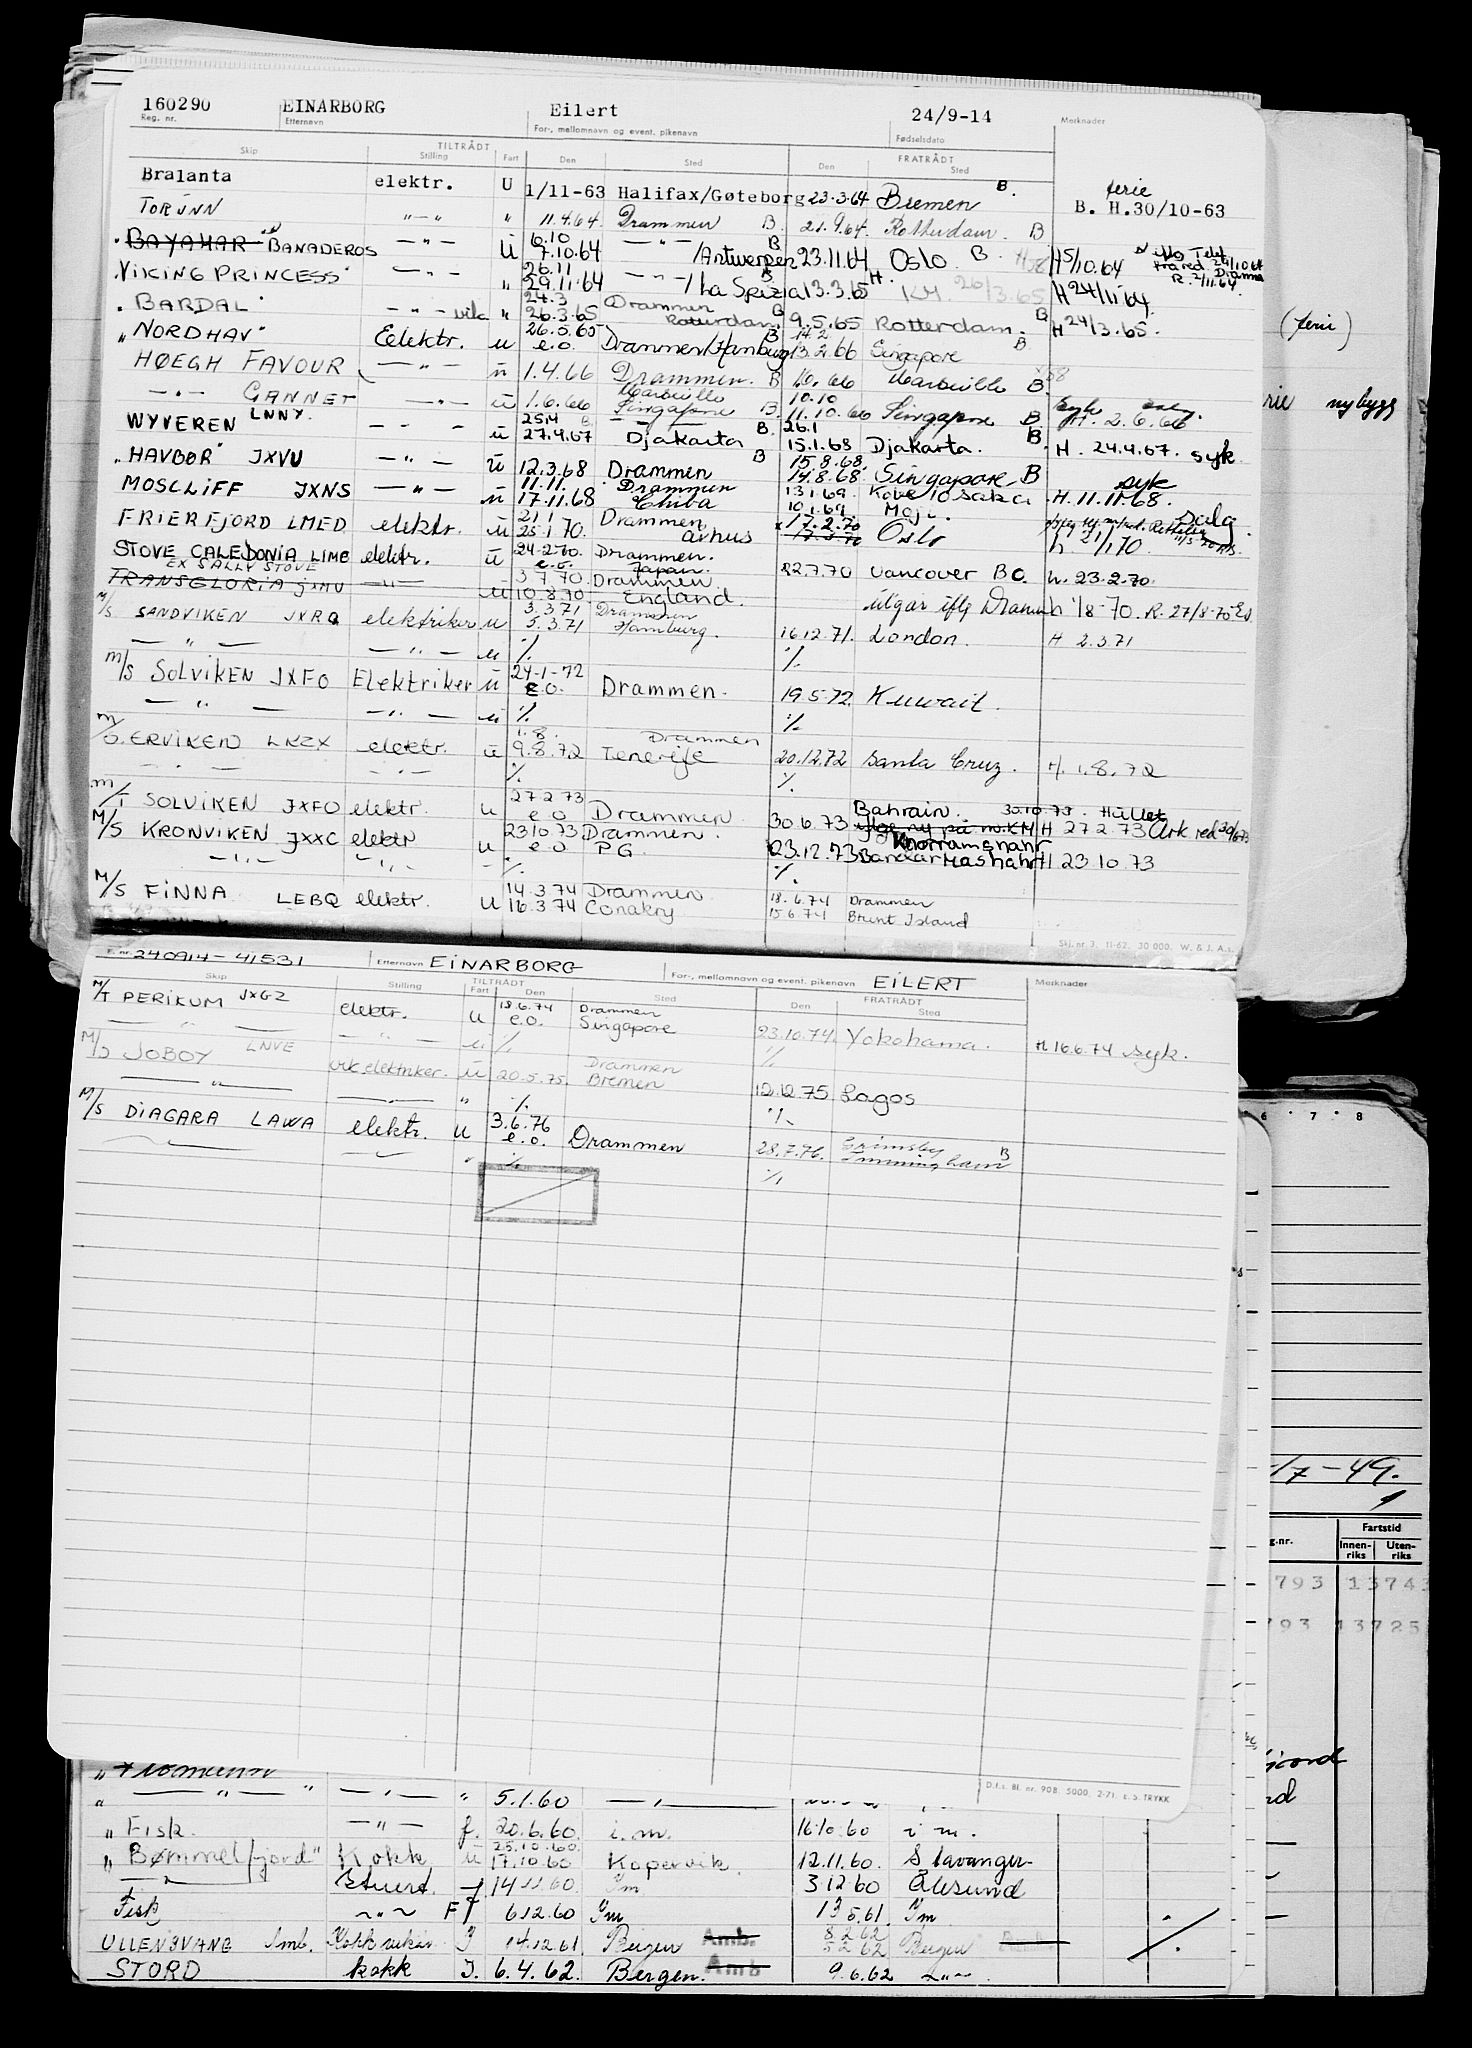 160290 EINARBORG Eilert 24/9-14 Merknader
Reg. nr. Etternavn For-, mellomnavn og event. pikenavn Fødselsdato
TILTRÅDT FRATRÅDT
Skip Stilling Fart Den Sted Den Sted
ferie
Bralanta elektr. U 1/11-63 Halifax/Gøteborg 23-3-64 Bremen B. B. H.30/10-63
TORINN —"— " 11.4.64 Drammen B. 21.9.64 Rotterdam. B
6.10 —"— B
BAYAMAR BANADEROS —"— U 7.10.64 /Antwerpen 23.11.64 Oslo B. H 5/10.64
26.11
VIKING PRINCESS —"— " 29.11.64 —"—/La Spezia 13.3.65 H 24/11 64
24.3 Drammen B
BARDAL —"— vik " 26.3.65 Rotterdam 9.5.65 Rotterdam. B H 24/3.65. (ferie)
26.5.65 B 14.2
"NORDHAV" Eelektr. u e.o. Drammen/Hamburg 13.2.66 Singapore B
HØEGH FAVOUR —"— u 1.4.66 Drammen. B 10. 66 Marseille B
Marseille 10.10
—"— GANNET —"— u 1.6.66 Singapore B. 11.10.66 Singapore B H. 2.6.66 nybygg
25/4 B. 26.1
WYVEREN LNNY. — " — u 27.4.67 Djakarta 15.1.68 Djakarta. B H. 24.4.67. syk
B 15.8.68.
"HAVBØR" JXVU —"— u 12.3.68 Drammen 14.8.68 Singapore B
11.11. Drammen 13.1.69. Kobe/Osaka syk
MOSCLIFF JXNS —"— u 17.11.68 Chiba 10.1.69 Moji. H. 11.11.68.
21.1 Drammen 17.2.70 salg
FRIERFJORD LMED elektr. u 25.1.70. århus 17.3.70 Oslo h. 21/1 70
24-2-70. Drammen.
STOVE CALEDONIA LIMB elektr. u e.o. Japan. 22.7.70 Vancover BC. h. 23.2.70.
EX SALLY STOVE 3.7.70. Drammen
TRANSGLORIA —"— u 10.8.70 England. utgår iflg Dramm h 1/8-70. R. 27/8-70
3.3.71 Drammen
M/S SANDVIKEN JXRQ elektriker u 5.3.71 Hamburg. 16.12.71. London. H 2.3.71
— " — —"— u ./. ./.
24-1-72
M/S SOLVIKEN JXFO Elektriker u e.o. Drammen. 19.5.72. Kuwait.
— " — —"— u ./. ./.
1.8. Drammen
ERVIKEN LKZX elektr. u 9.8.72 Tenerife 20.12.72 Santa Cruz. H. 1.8.72
— " — —"— ./. ./.
27.2.73 Bahrain. 30.10.73. Hullet
M/T SOLVIKEN JXFO elektr. u e.o Drammen. 30.6.73 H 27.2.73 Ark red 30/6 73
23.10.73 Drammen. Khorramshahr
M/S KRONVIKEN JXXC elektr u e.o P.G. 23.12.73 Bandar Mashahr H 23.10.73
—"— —"— ./. ./.
14.3.74 Drammen 18.6.74 Drammen
M/S FINNA LEBQ elektr. u 16.3.74 Conakry 15.6.74 Brunt Island
Skj. nr. 3. 11-62. 30 000. W. & J. A.s.
F. nr. 240914-41531 Etternavn EINARBORG For-, mellomnavn og event. pikenavn EILERT Merknader
TILTRÅDT FRATRÅDT
Skip Stilling Fart Den Sted Den Sted
18.6.74 Drammen
M/T PERIKUM JXGZ elektr. u e.o. Singapore 23.10.74. Yokohama. H 16.6.74 syk.
— " — —"— u ./. ./.
Drammen
JOBOY LNVE vik elektriker. u 20.5.75. Bremen 12.12.75 Lagos
— " — " ./. ./.
3.6.76
M/S DIAGARA LAWA elektr. u e.o. Drammen 28.7.76. Grimsby
Immingham B
" ./. ./.
D.f.s. Bl. nr. 908. 5000. 2-71. E. S. TRYKK
6 7 8
-/7-49.
Fartstid
g.nr. Innen-riks Uten-riks
793 13743
793 13725
— " — " —"— " 5.1.60 —"—
"Fisk. —"— f. 20.6.60. i.m. 16.10.60 i m.
25.10.60.
"Bømmelfjord" Kokk u 17.10.60 Kopervik. 12.11.60. Stavanger
—"— Stuert 14.11.60. Im 3.12.60 Ålesund
Fisk —"— Ff 6.12.60 Im 13.5.61. Im
8.2.62
ULLENSVANG Amb. Kokk vikar J 14.12.61 Bergen Amb. 5.2.62 Bergen
STORD kokk J. 6.4.62. Bergen. Amb 9.6.62 —"—